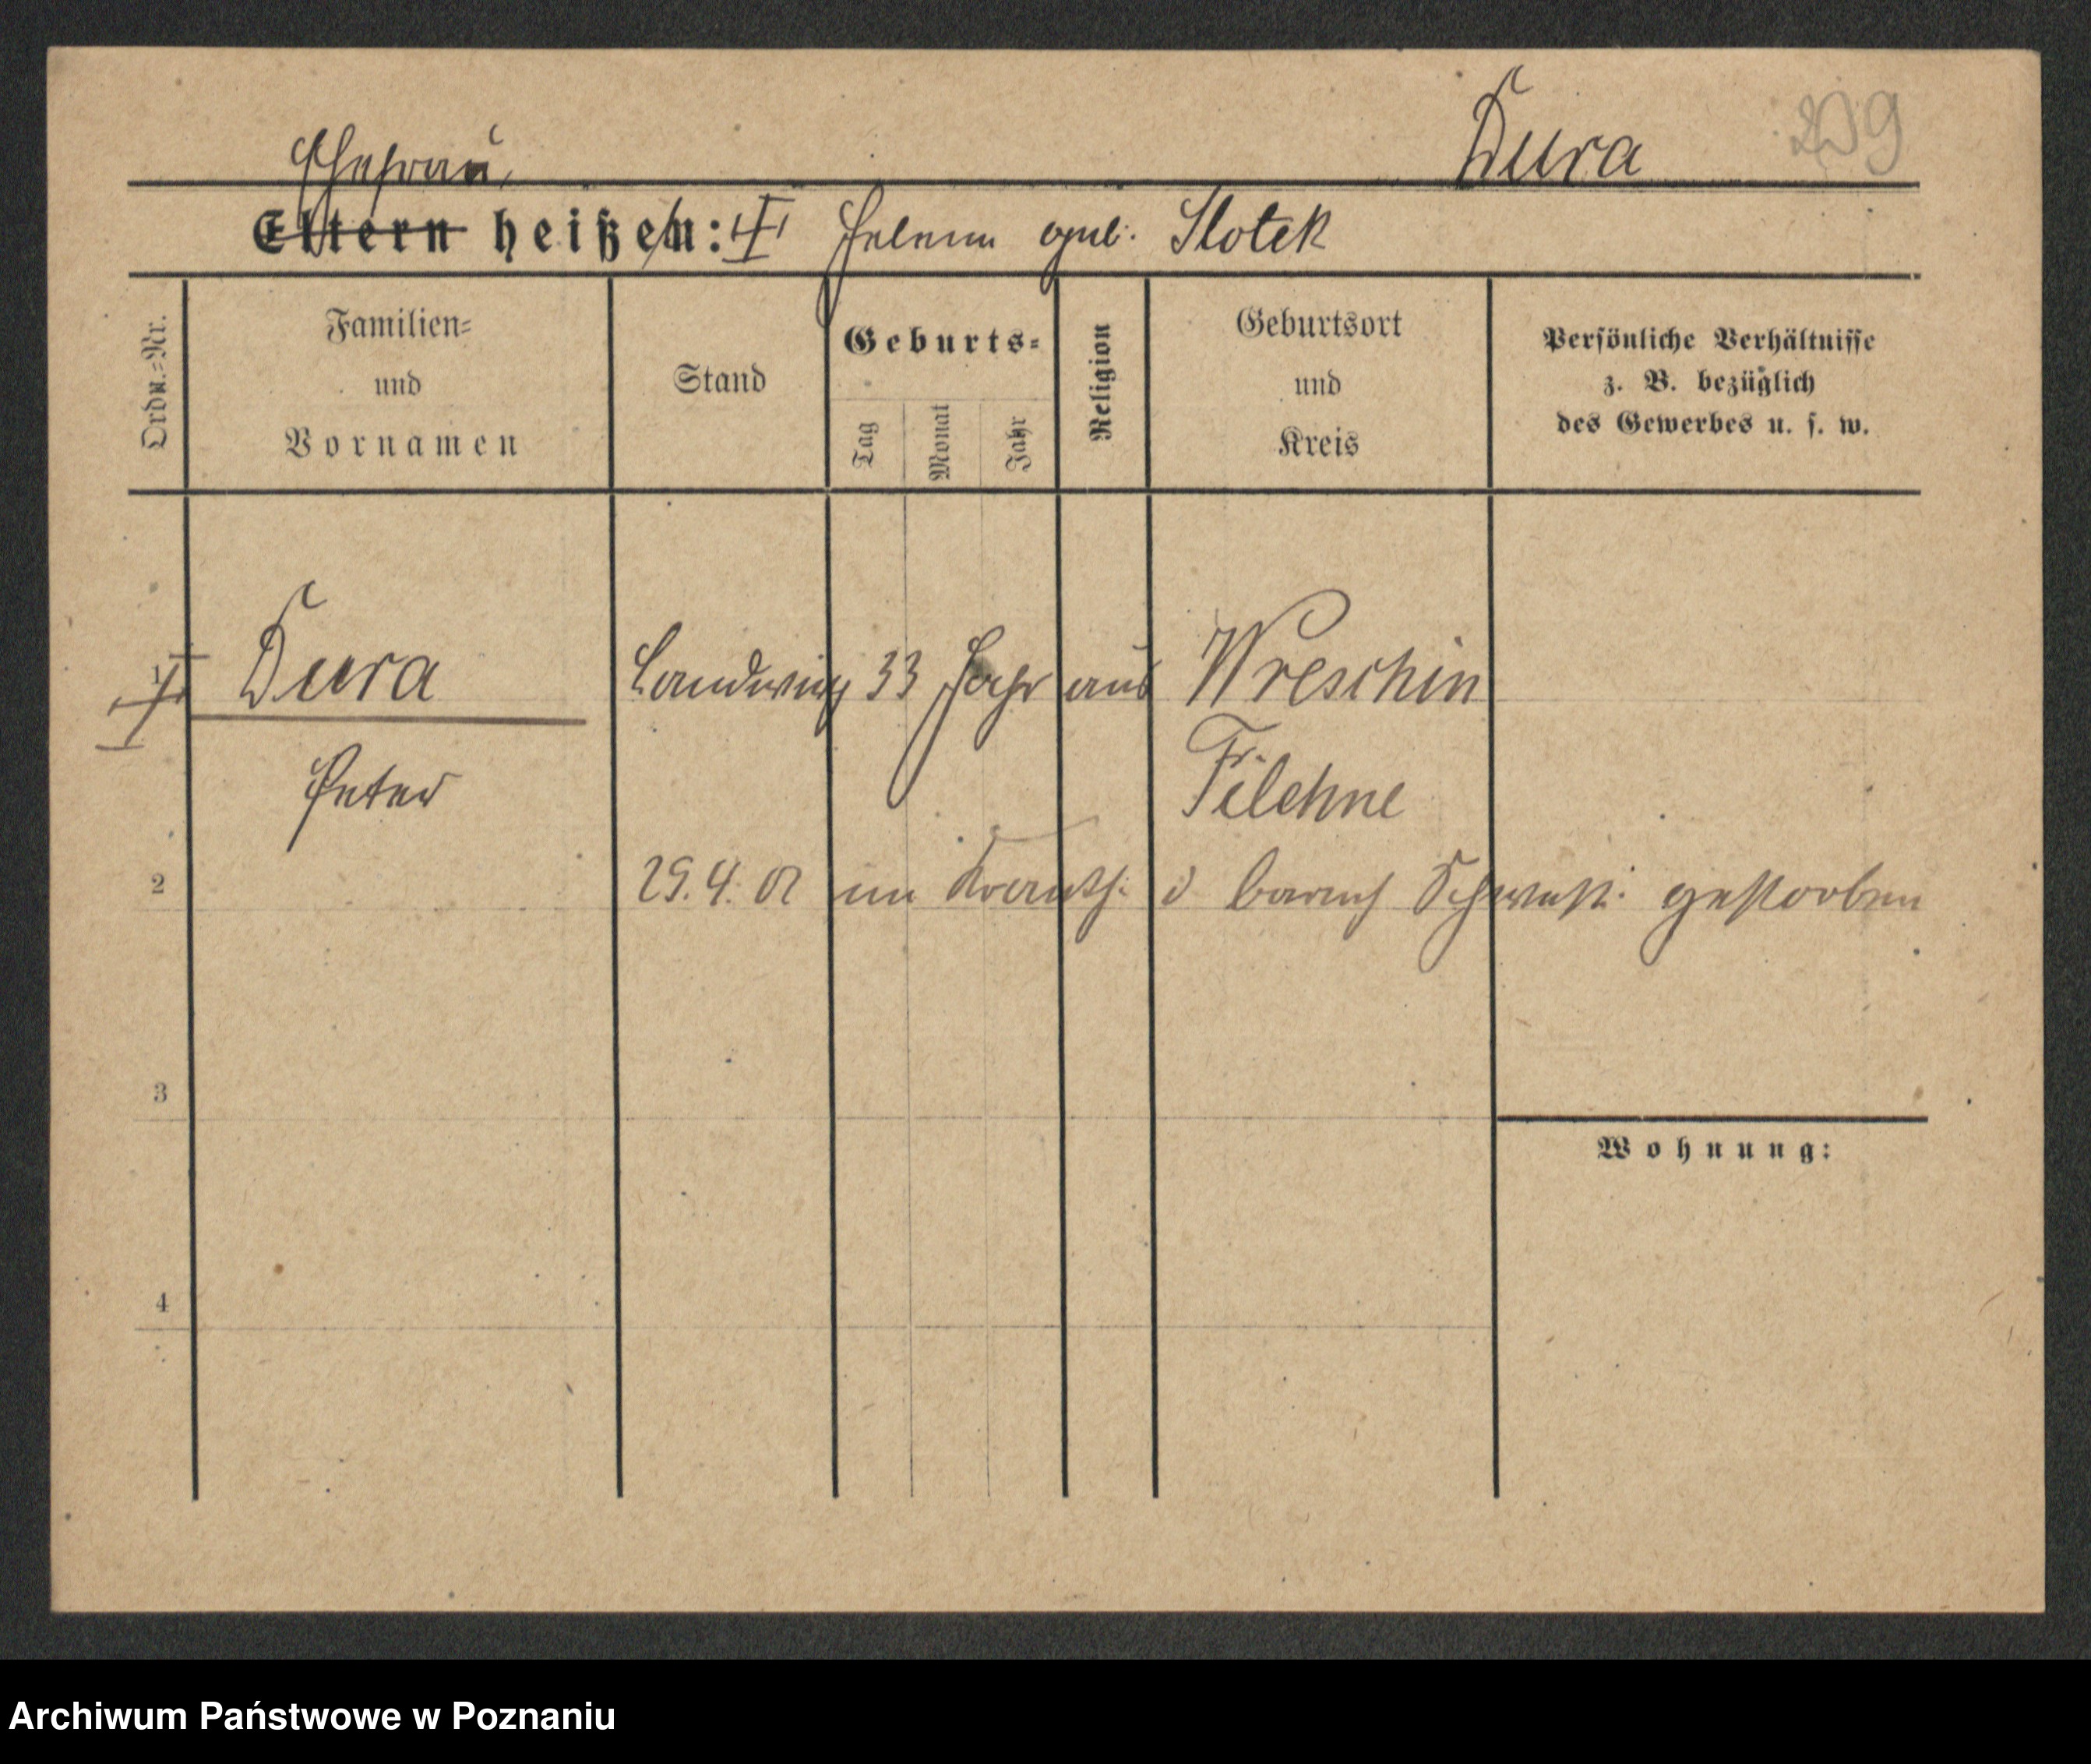 Dura 209
Ehefrau
Eltern heißen: Helene geb. Slotek
Ordn.-Nr.
Familien-
und
Vornamen
Stand
Geburts-
Tag
Monat
Jahr
Religion
Geburtsort
und
Kreis
Persönliche Verhältnisse
z. B. bezüglich
des Gewerbes u. s. w.
1 Dura Landwirt 33 Jahr aus Wreschin
Peter Filehne
2 29.4.01 im Krankh. d barmh Schwest. gestorben
3
Wohnung:
4
Archiwum Państwowe w Poznaniu